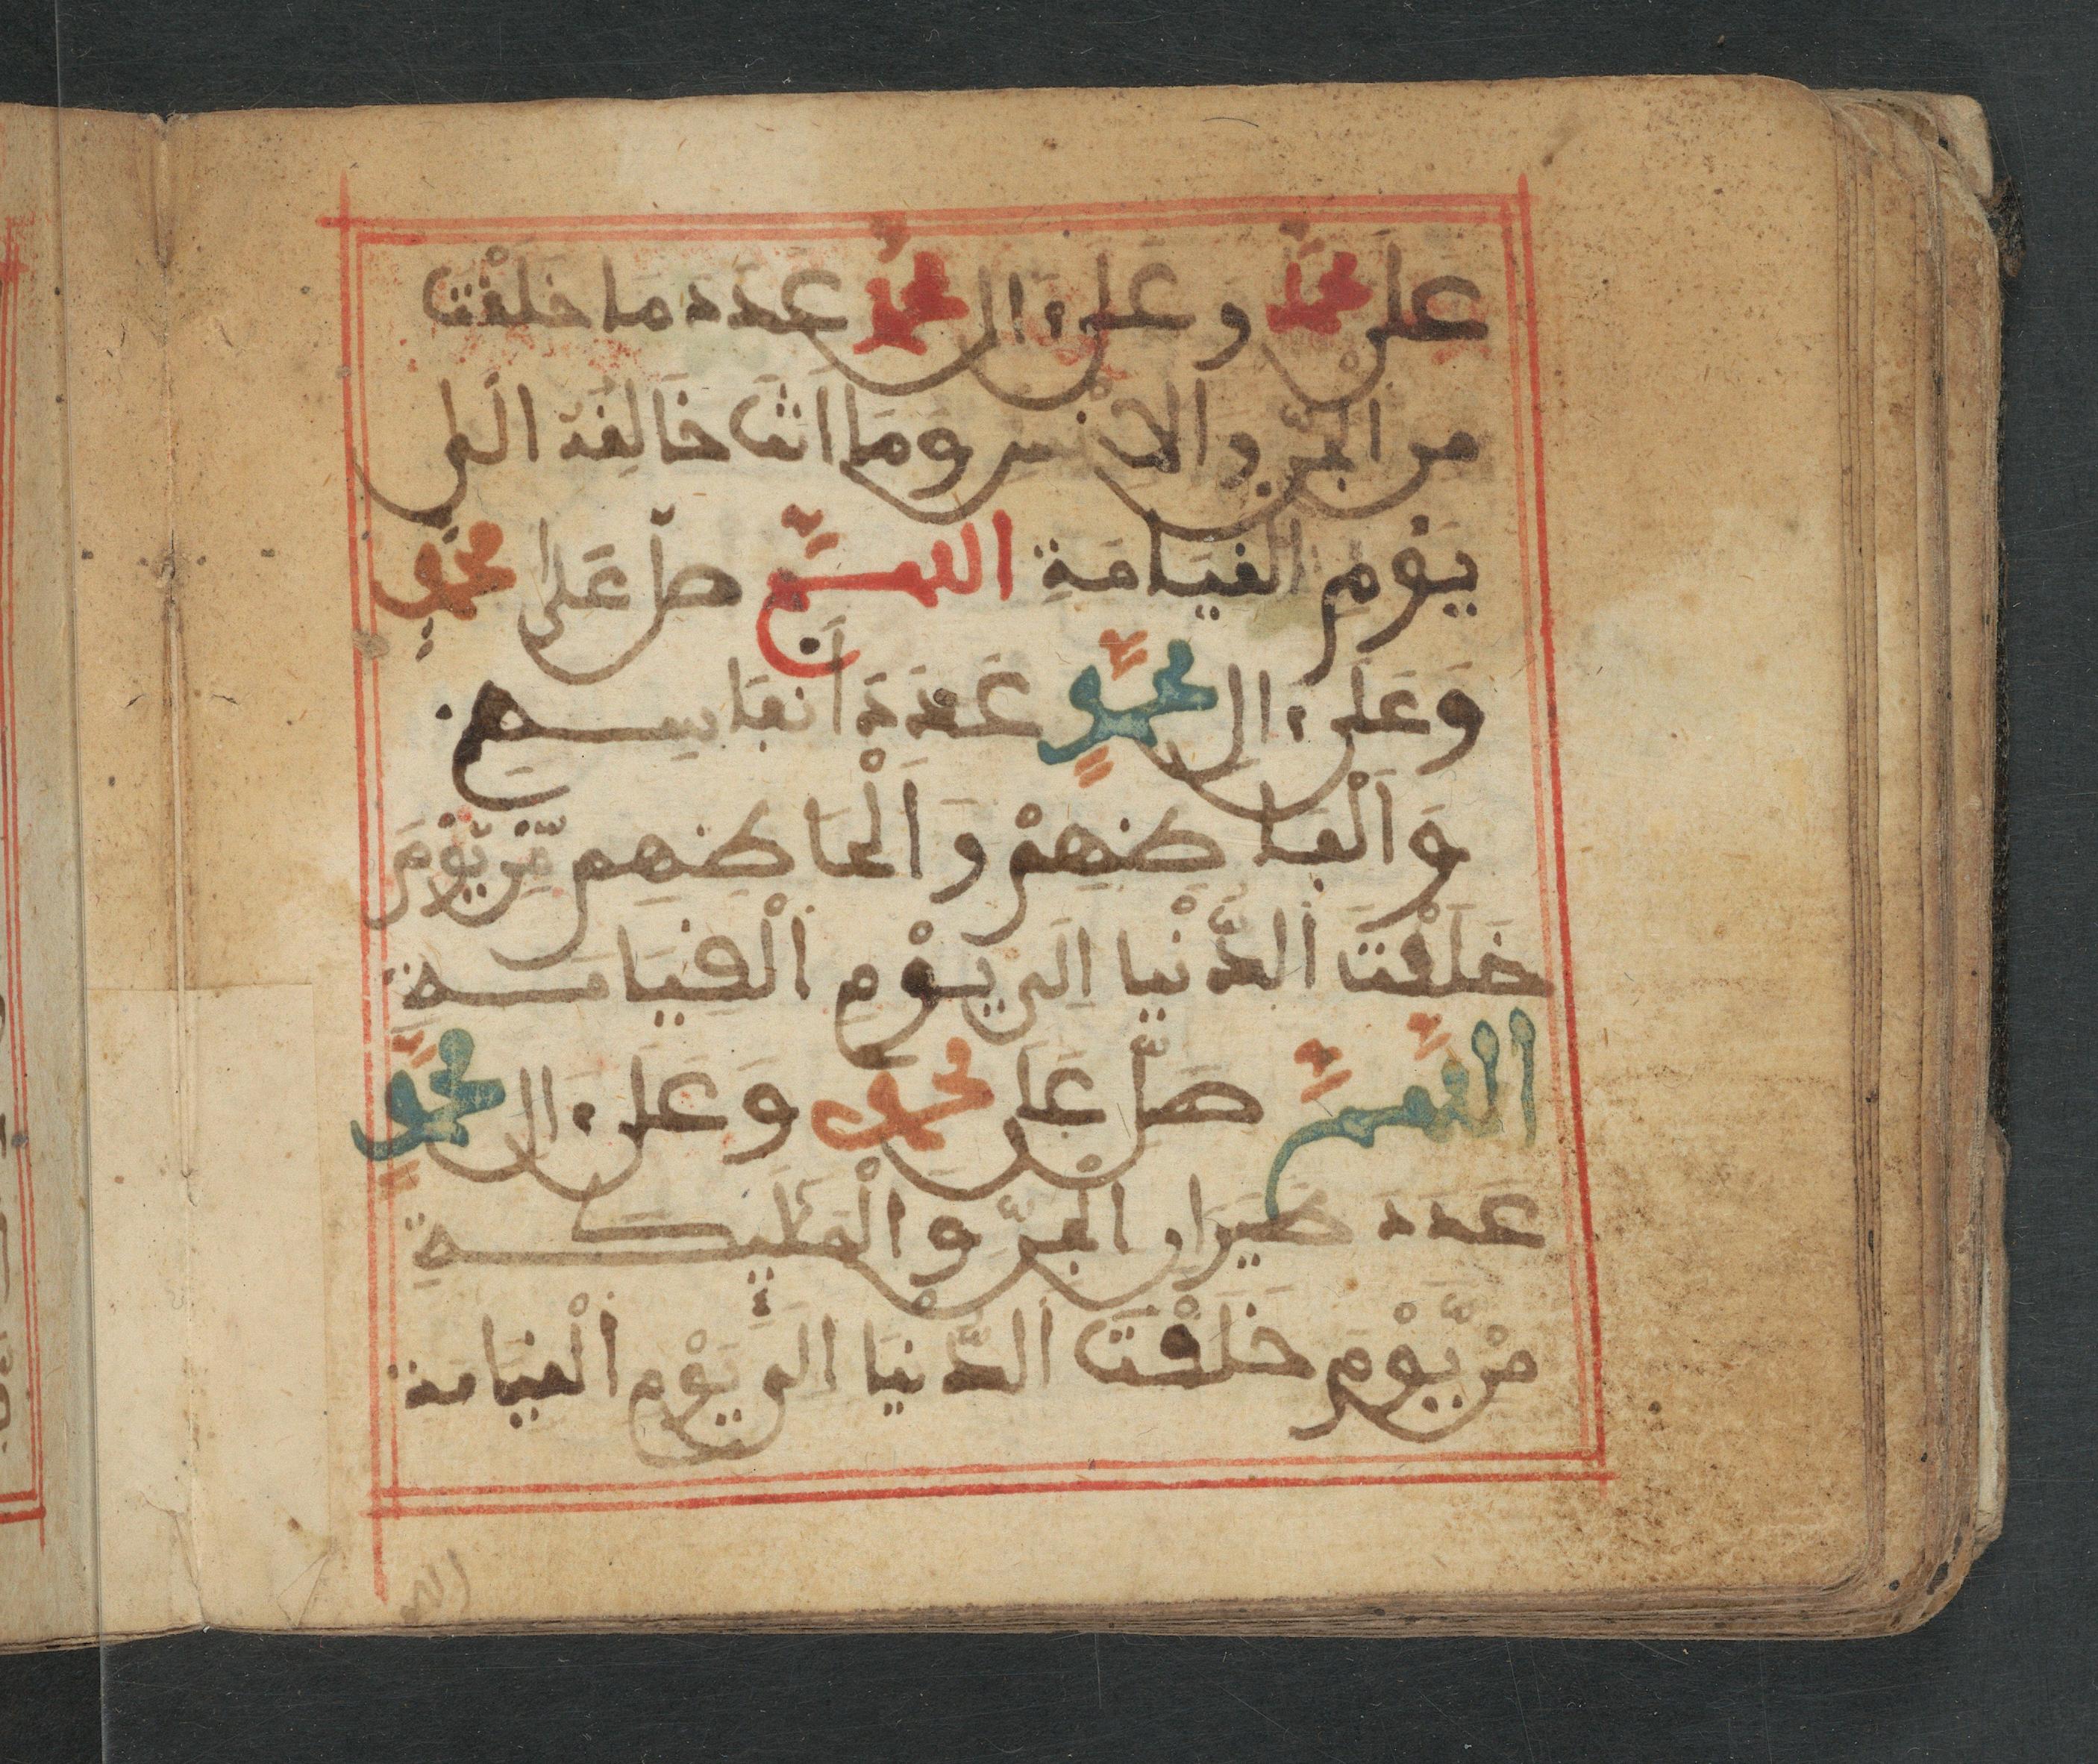 على محمد وعلىٰ ءال محمد عدد ما خلقت
من الجن والانس وما انت خالقه الى
يوم القيامة اللهم صل على محمد
وعلىٰ ءال محمد عدد انفاسهم
والفاظهم والحاظهم من يوم
خلقت الدنيا الى يوم القيامة
اللهم صل على محمد وعلى ءال محمد
عدد طيران الجن والمليكة
من يوم خلقت الدنيا الى يوم القيامة